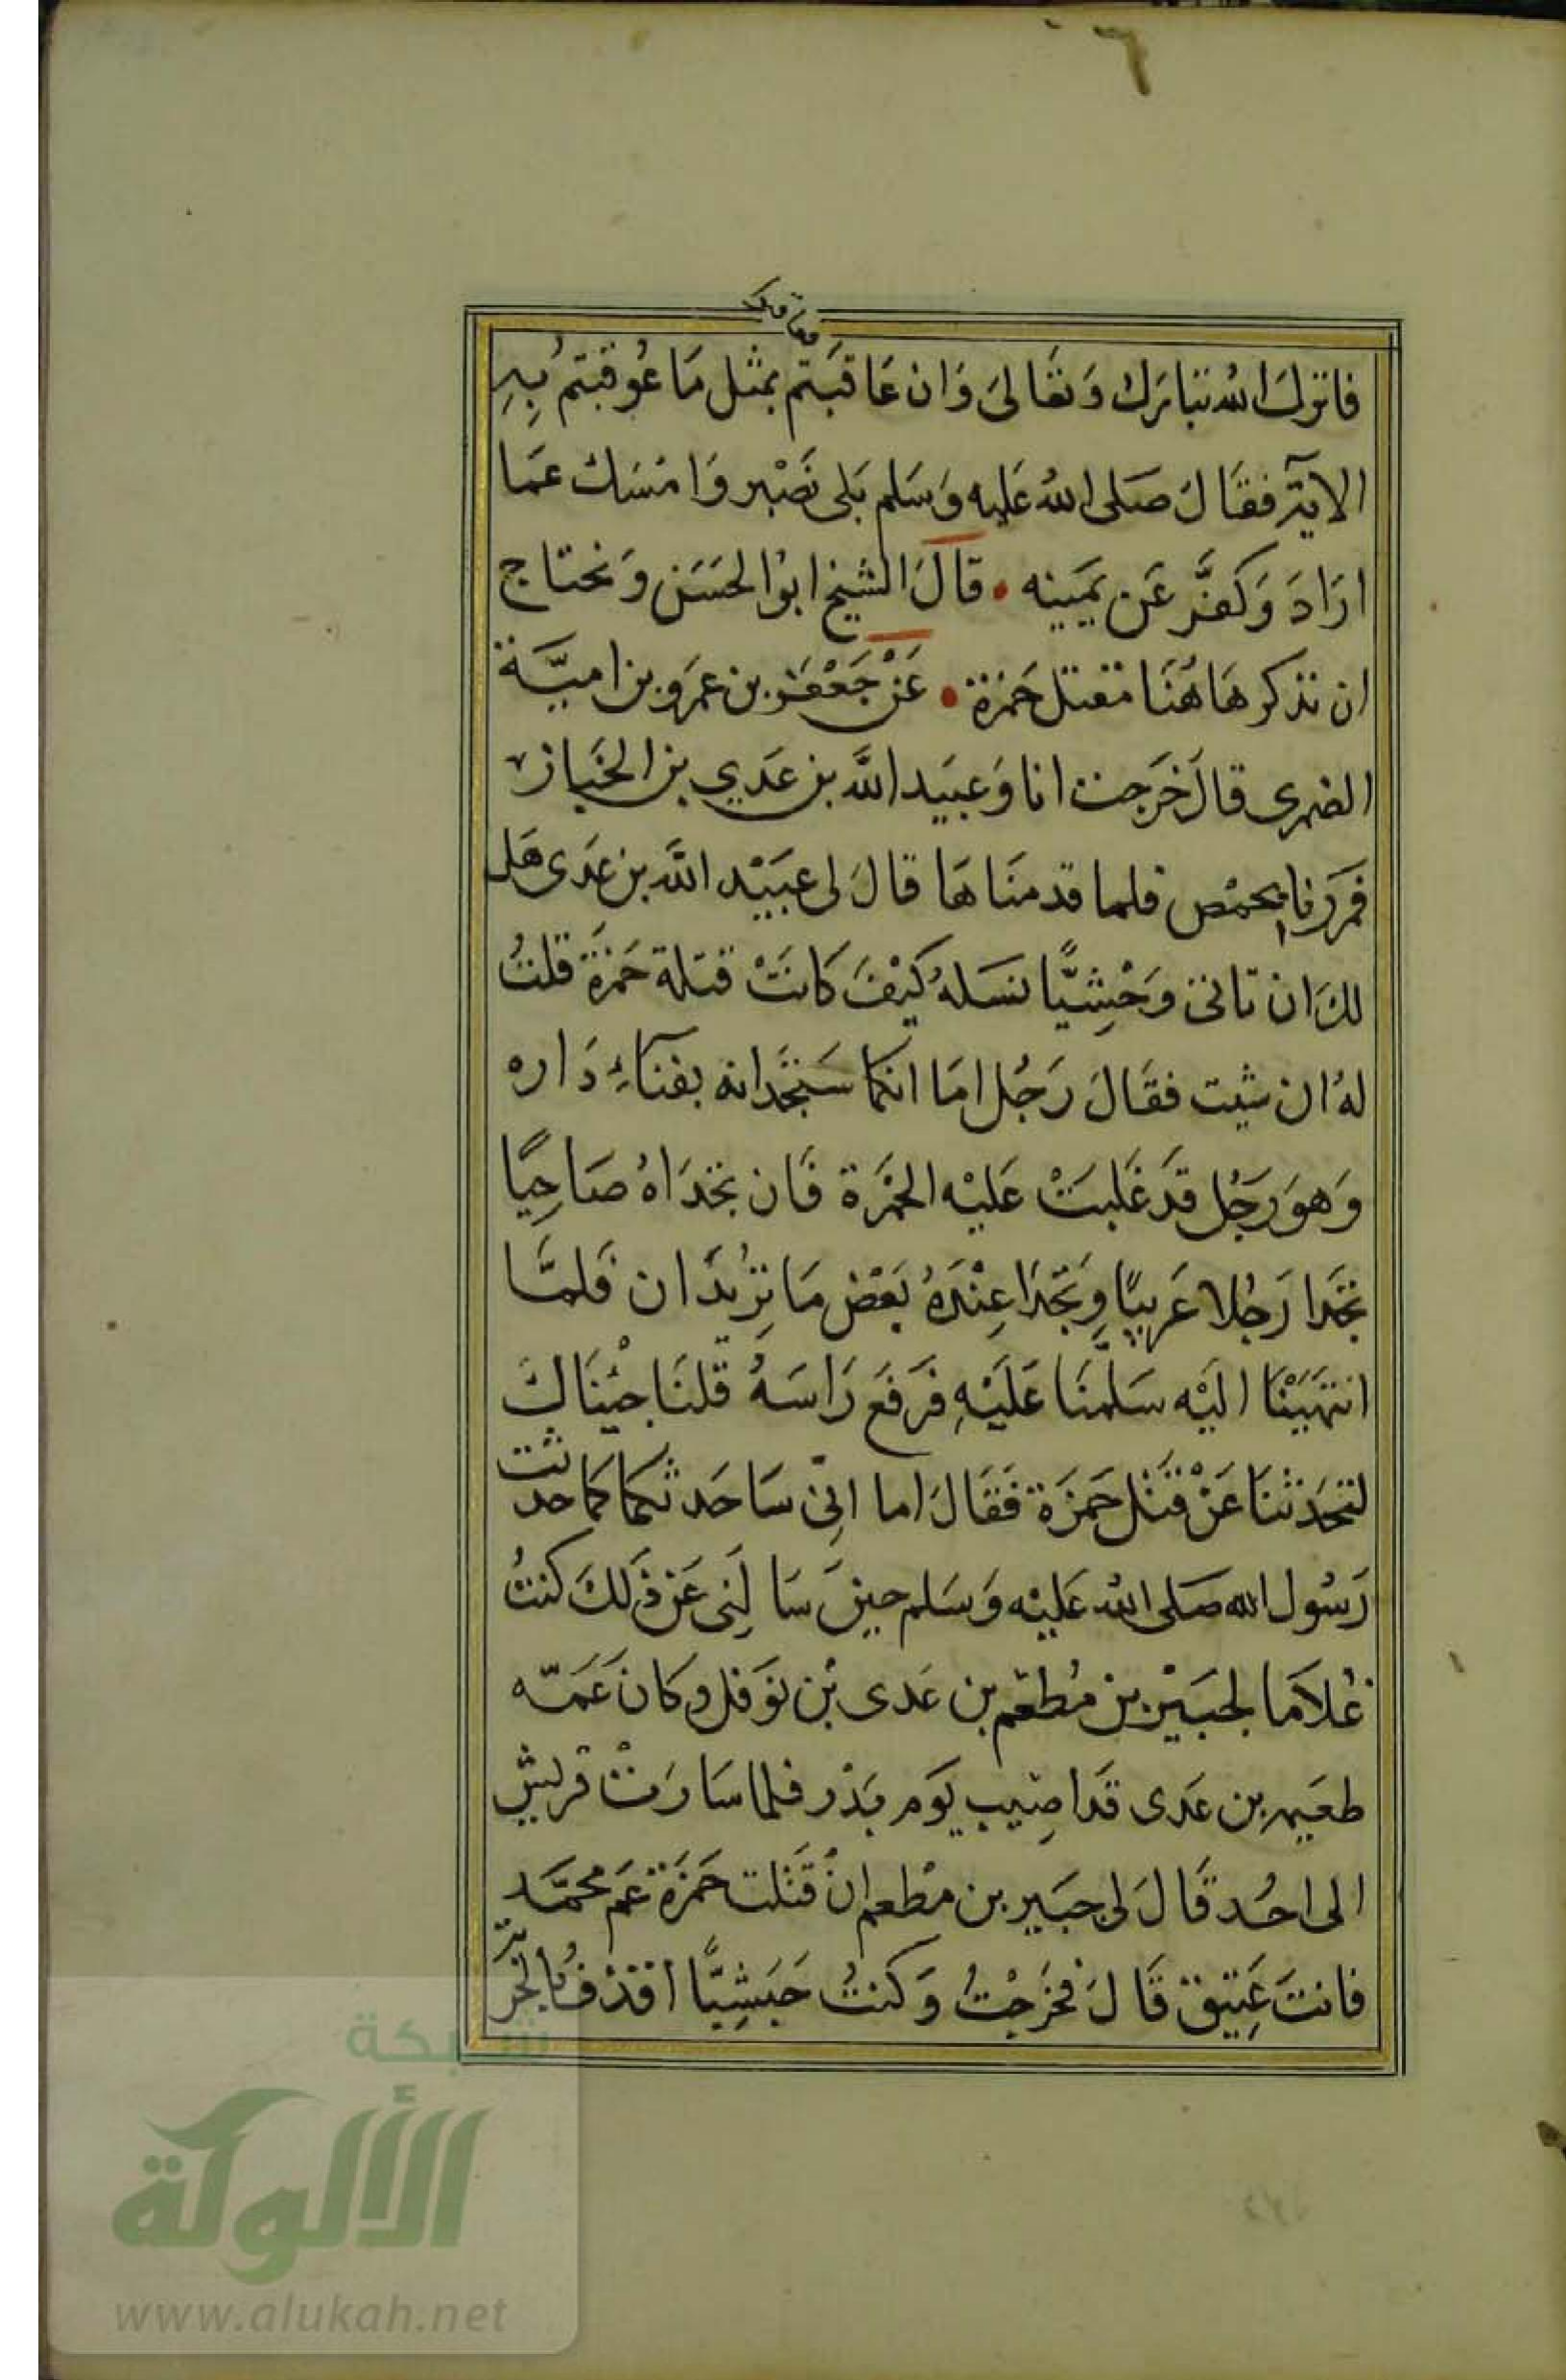 ٦
فعاقبوا
فانزل الله تبارك وتعالى وان عاقبتم بمثل ما عوقبتم به
الاية فقال صلى الله عليه وسلم بلى نصبر وامسك عما
اراد وكفر عن يمينه • قال الشيخ ابو الحسن ونحتاج
ان نذكر هاهنا مقتل حمزة • عن جعفر بن عمرو بن امية
الضمرى قال خرجت انا وعبيد الله بن عدي بن الخيار
فمررنا بحمص فلما قدمناها قال لى عبيد الله بن عدى هل
لك ان تاتى وحشيا نسله كيف كانت قتلة حمزة قلت
له ان شيت فقال رجل اما انكما ستجدانه بفناء داره
وهو رجل قد غلبت عليه الخمرة فان تجداه صاحيا
تجدا رجلا عربيا وتجدا عنده بعض ما تريدان فلما
انتهينا اليه سلمنا عليه فرفع راسه قلنا جئناك
لتحدثنا عن قتل حمزة فقال اما انى ساحدثكما كما حدثت
رسول الله صلى الله عليه وسلم حين سالنى عن ذلك كنت
غلاما لجبير بن مطعم بن عدى بن نوفل وكان عمه
طعيمه بن عدى قد اصيب يوم بدر فلما سارت قريش
الى احد قال لى جبير بن مطعم ان قتلت حمزة عم محمد
فانت عتيق قال فخرجت وكنت حبشيا اقذف بالحربة
شبكة
الألوكة
www.alukah.net